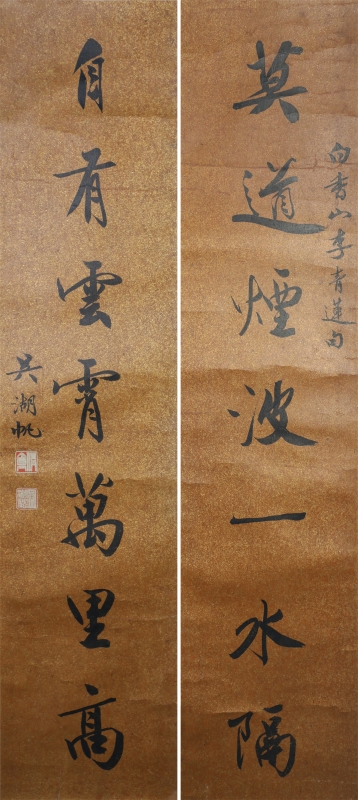 白香山李青蓮句
莫道煙波一水隔
自有雲霄萬里高
吳湖帆